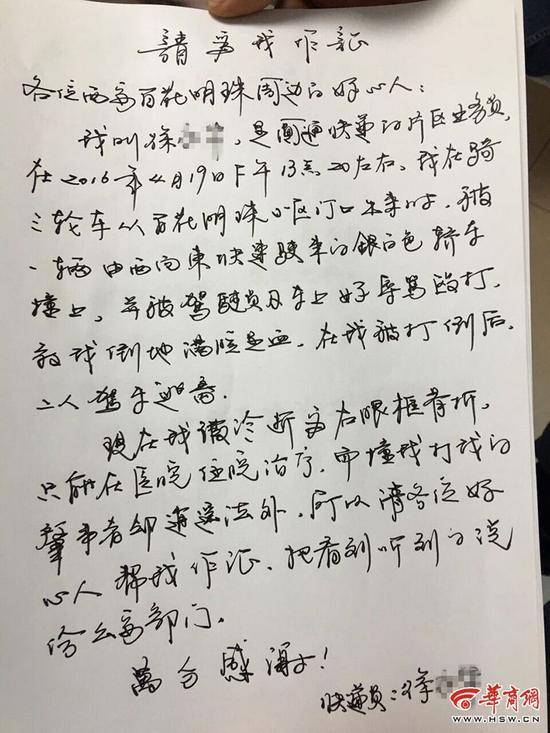 請为我作证
各位西安百花明珠周边的好心人：
我叫徐，是圆通快递的片区业务员，
在2016年4月19日下午13点20左右，我在骑
三轮车从百花明珠小区门口出来时，被
一辆由西向東快速驶来的銀白色轿车
撞上，并被驾驶员及车上好辱骂殴打，
致我倒地满脸是血，在我被打倒后，
二人驾车逃离．
现在我被诊断为右眼框骨折，
只能在医院住院治疗，而撞我打我的
肇事者却逍遥法外，所以请各位好
心人帮我作证，把看到听到的说
给公安部门．
萬分感谢！
快递员：徐
华商網
WWW.HSW.CN